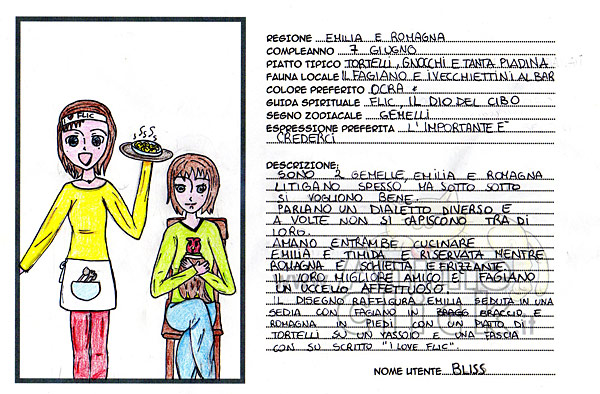 FLIC
REGIONE EMILIA E ROMAGNA
COMPLEANNO 7 GIUGNO
PIATTO TIPICO TORTELLI, GNOCCHI E TANTA PIADINA
FAUNA LOCALE IL FAGIANO E I VECCHIETTINI AL BAR
COLORE PREFERITO OCRA
GUIDA SPIRITUALE FLIC, IL DIO DEL CIBO
SEGNO ZODIACALE GEMELLI
ESPRESSIONE PREFERITA L'IMPORTANTE E'
CREDERCI
DESCRIZIONE:
SONO 2 GEMELLE, EMILIA E ROMAGNA
LITIGANO SPESSO MA SOTTO SOTTO
SI VOGLIONO BENE.
PARLANO UN DIALETTO DIVERSO E
A VOLTE NON SI CAPISCONO TRA DI
LORO.
AMANO ENTRAMBE CUCINARE
EMILIA E' TIMIDA E RISERVATA MENTRE
ROMAGNA E' SCHIETTA E FRIZZANTE.
IL LORO MIGLIORE AMICO E' FAGIANO
UN UCCELLO AFFETTUOSO.
IL DISEGNO RAFFIGURA EMILIA SEDUTA IN UNA
SEDIA CON FAGIANO IN BRACCIO E
ROMAGNA IN PIEDI CON UN PIATTO DI
TORTELLI SU UN VASSOIO E UNA FASCIA
CON SU SCRITTO "I LOVE FLIC".
NOME UTENTE BLISS